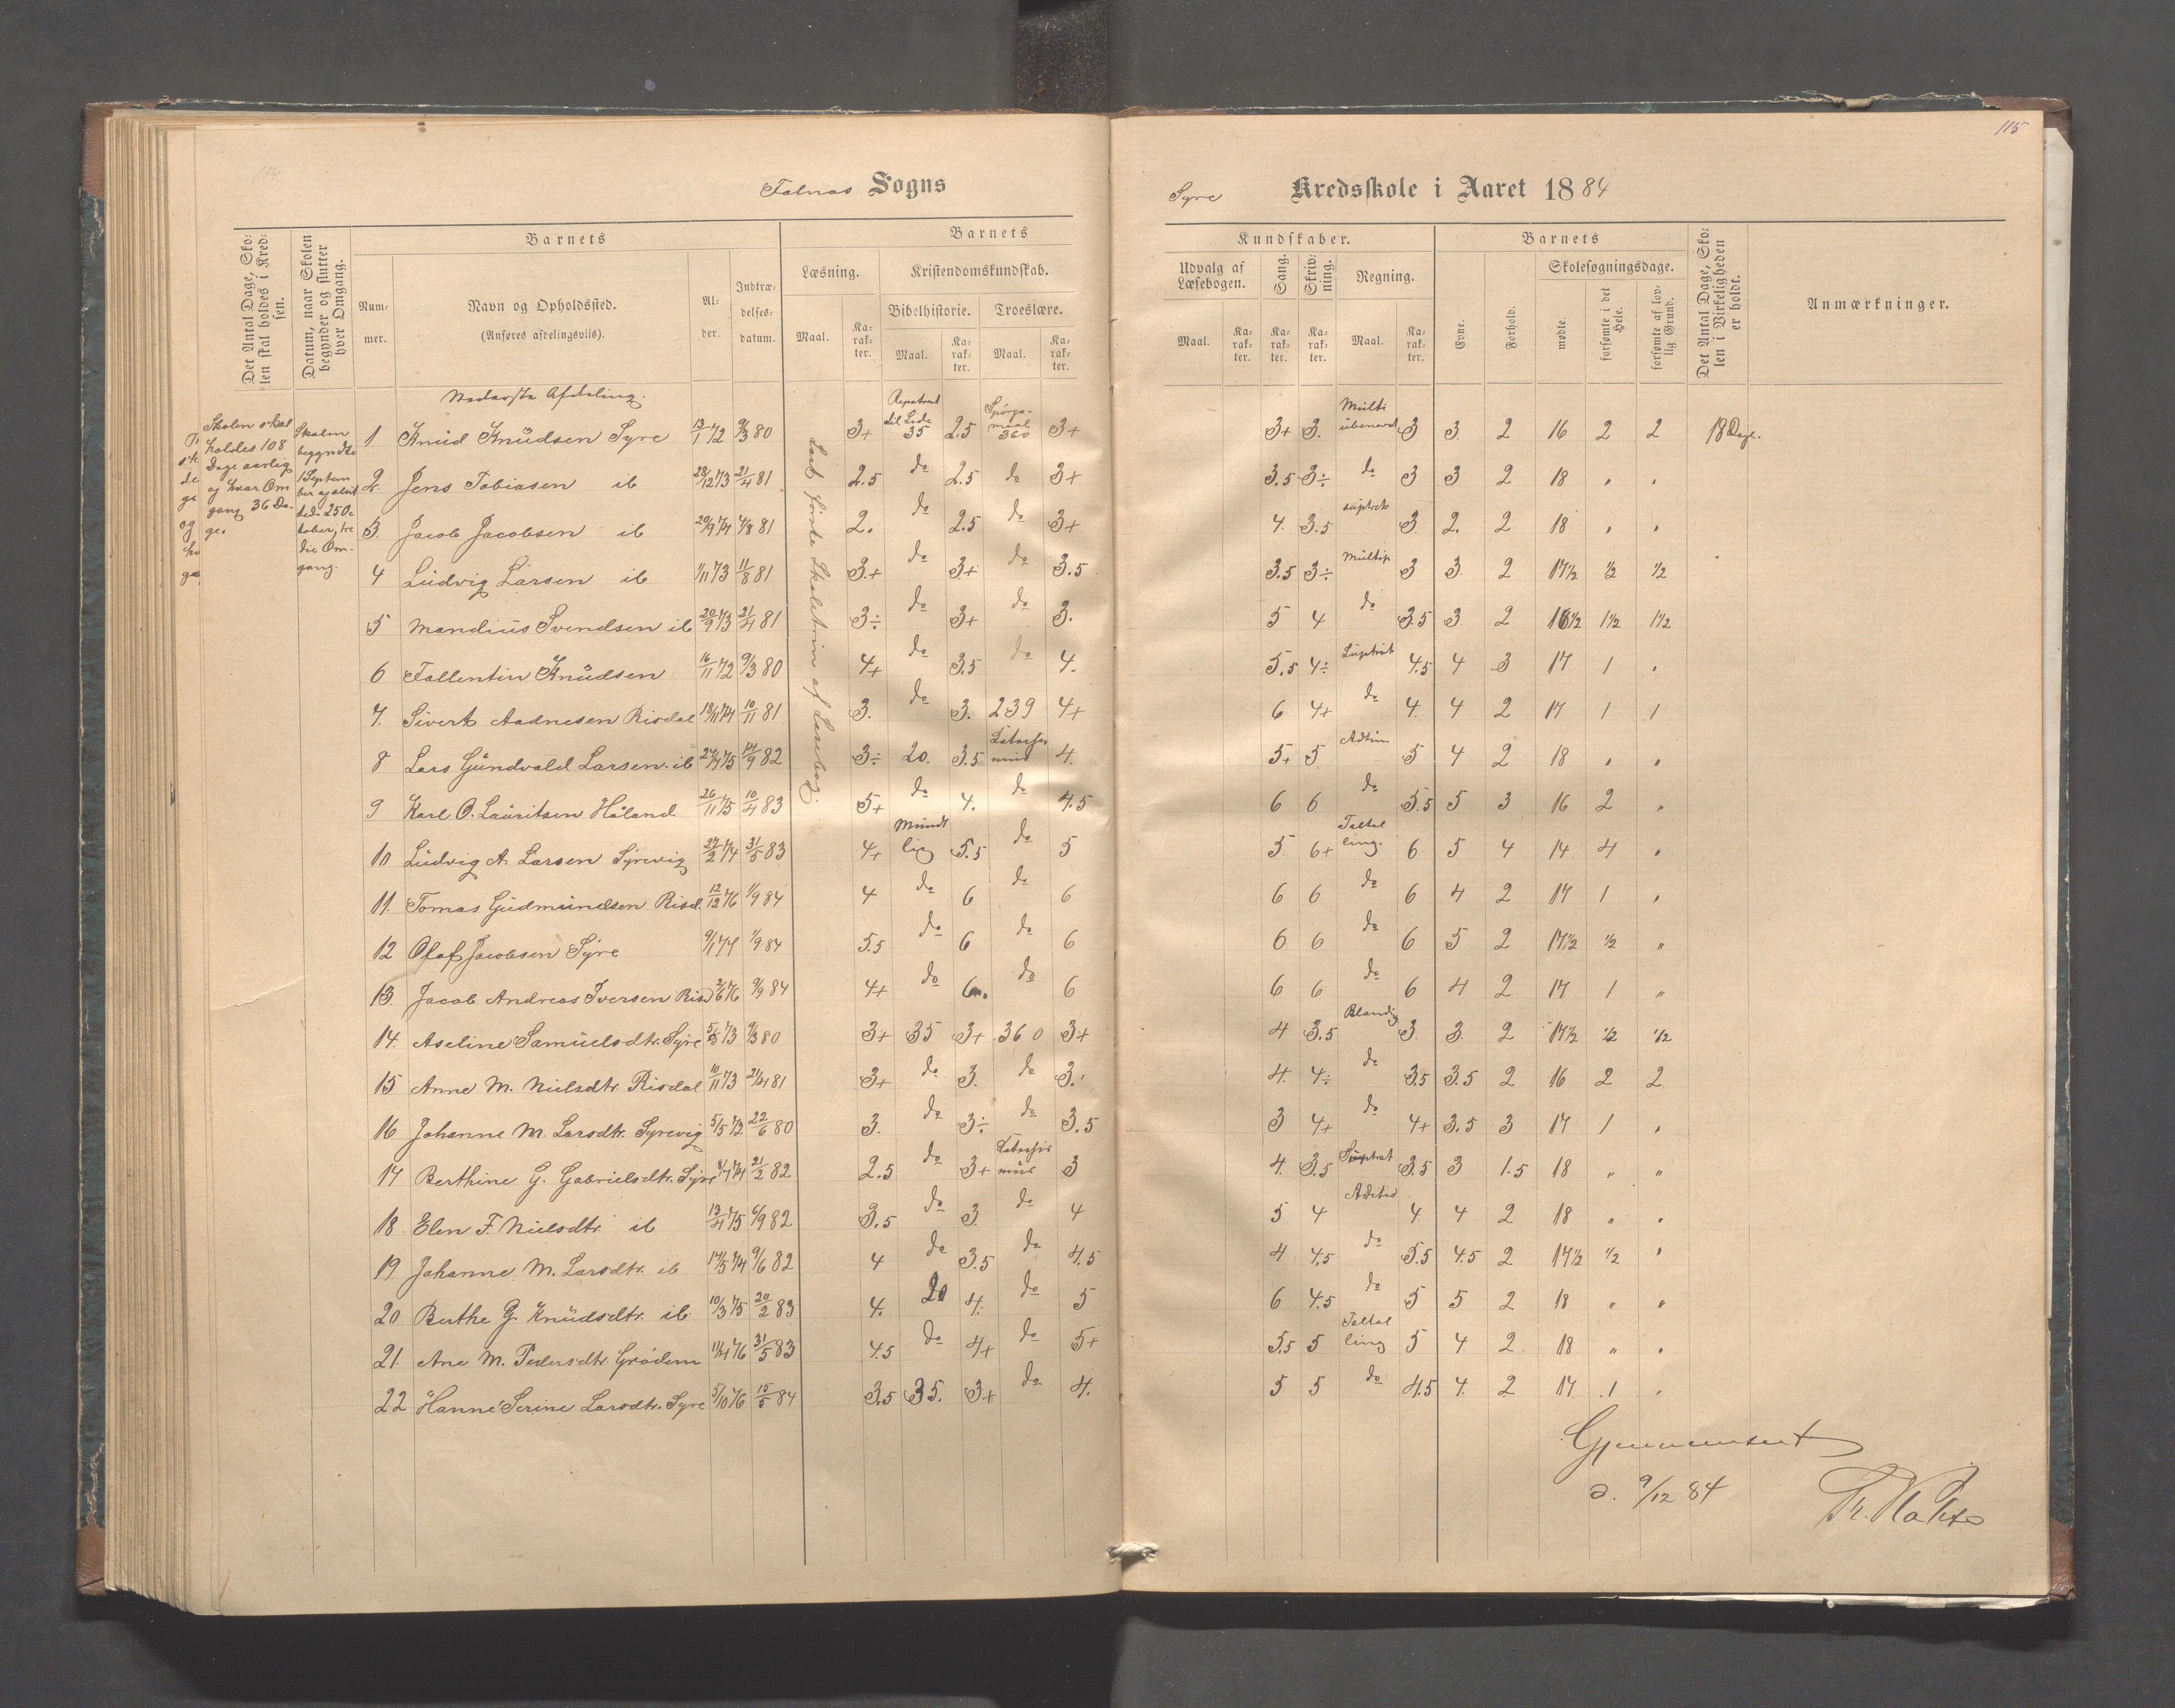 115
Falnes Sogns
Syre Kredsskole i Aaret 1884
Det Antal Dage, Skolen skal holdes i Kredsen.
Datum, naar Skolen begynder og slutter hver Omgang.
Barnets
Nummer.
Navn og Opholdssted.
(Anføres afdelingsviis).
Alder.
Indtrædelsesdatum.
Barnets
Læsning.
Kristendomskundskab.
Bibelhistorie. Troeslære.
Maal. Karakter. Maal. Karakter. Maal. Karakter.
Kundskaber.
Udvalg af Læsebogen. Sang. Skrivning. Regning.
Maal. Karakter. Karakter. Karakter. Maal. Karakter.
Barnets
Evne. Forhold.
Skolesøgningsdage.
mødte. forsømte i det Hele. forsømte af lovlig Grund.
Det Antal Dage, Skolen i Virkeligheden er holdt.
Anmærkninger.
Skolen skal
holdes 108
Dage aarlig
og hver Om
gang 36 Da-
ge.
Skolen
begyndte
1 Septem
ber og slut
tede 25 Oc
tober, tre
die Om-
gang.
Nederste Afdeling.
Læst første Skoletrin af Læsebog.
1 Knud Knudsen Syre 13/1 72 9/3 80 3+ Repeteret til Lide 35 2.5 Spørgs-maal 360 3+ 3+ 3. Multi 3 3. 2 16 2 2 18 Dage.
2. Jens Tobiasen ib 28/12 73 21/4 81 2.5 do 2.5 do 3+ 3.5 3÷ do 3 3 2 18 " "
3. Jacob Jacobsen ib 20/9 74 4/8 81 2. do 2.5 do 3+ 4. 3.5 suptrak 3 2. 2 18 " "
4 Ludvig Larsen ib 1/11 73 11/8 81 3+ do 3+ do 3.5 3.5 3÷ Multip 3 3 2 17½ ½ ½
5 Mandius Svendsen ib 20/9 73 21/4 81 3÷ do 3+ do 3. 5 4 do 3.5 3 2 16½ 1½ 1½
6 Fallentin Knudsen 16/11 72 9/3 80 4+ do 3.5 do 4. 5.5 4÷ Suptrak 4.5 4 3 17 1 "
7. Sivert Aadnesen Risdal 18/11 74 10/11 81 3. do 3. 239 4+ 6 4+ do 4. 4 2 17 1 1
8 Lars Gundvald Larsen ib 24/7 75 14/9 82 3÷ 20. 3.5 Katechis mus 4. 5+ 5 Adtion 5 4 2 18 " "
9 Karl O. Lauritsen Håland 26/11 75 10/4 83 5+ do 4. do 4.5 6 6 do 5.5 5 3 16 2 "
10 Ludvig A. Larsen Syrevig 27/2 74 31/5 83 4+ Mundt lig 5.5 do 5 5 6+ Taltal ling. 6 5 4 14 4 "
11. Tomas Gudmundsen Risd. 12/12 76 1/9 84 4 do 6 do 6 6 6 do 6 4 2 17 1 "
12 Olaf Jacobsen Syre 9/1 77 1/9 84 5.5 do 6 do 6 6 6 do 6 5 2 17½ ½ "
13. Jacob Andreas Iversen Risd 2/6 76 9/9 84 4+ do 6. do 6 6 6 do 6 4 2 17 1 "
14. Aseline Samuelsdtr. Syre 5/5 73 9/3 80 3+ 35 3+ 360 3+ 4 3.5 Blandig 3. 3. 2 17½ ½ ½
15 Anne M. Nielsdtr. Risdal 10/11 73 21/4 81 3+ do 3. do 3. 4. 4÷ do 3.5 3.5 2 16 2 2
16 Johanne M. Larsdtr. Syrevig 5/5 72 22/6 80 3. do 3÷ do 3.5 3 4+ do 4+ 3.5 3 17 1 "
17 Berthine G. Gabrielsdtr. Syre 8/7 74 21/2 82 2.5 do 3+ Katechis mus 3 4. 3.5 Suptrat 3.5 3 1.5 18 " "
18. Elen F. Nielsdtr. ib 13/4 75 6/9 82 3.5 do 3. do 4 5 4 Aditio 4 4 2 18 " "
19 Johanne M. Larsdtr. ib 17/5 74 9/6 82 4 do 3.5 do 4.5 4 4.5 do 5.5 4.5 2 17½ ½ "
20 Berthe G. Knudsdtr. ib 10/3 75 20/2 83 4. 20 4. do 5 6 4.5 do 5 5 2 18 " "
21. Ane M. Pedersdtr. Grødem 11/4 76 31/5 83 4.5 do 4+ do 5+ 5.5 5 Taltal ling 5 4. 2. 18 " "
22 Hanne Serine Larsdtr. Syre 5/10 76 15/5 84 3.5 35. 3+ do 4. 5 5 do 4.5 4. 2 17 1 "
Gjennemseet
d. 9/12 84